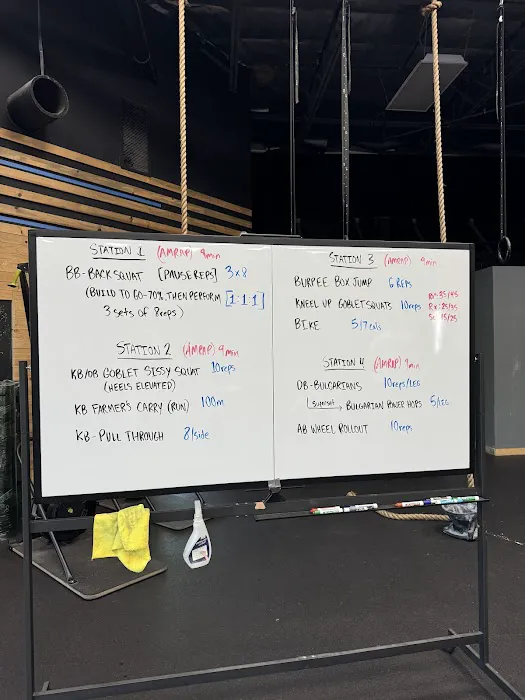 STATION 1 (AMRAP) 9min
BB-BACKSQUAT [PAUSE REPS] 3x8
(BUILD TO 60-70%, THEN PERFORM [1:1:1]
3 sets of 8reps)
STATION 2 (AMRAP) 9min
KB/DB GOBLET SISSY SQUAT 10reps
(HEELS ELEVATED)
KB FARMER'S CARRY (RUN) 100m
KB-PULL THROUGH 8/side
STATION 3 (AMRAP) 9min
BURPEE BOX JUMP 6 REPS
KNEEL UP GOBLET SQUATS 10reps
35/45
Rx: 25/35
Sc: 15/25
BIKE 5/7 cals
STATION 4 (AMRAP) 9min
DB-BULGARIANS 10reps/LEG
superset → BULGARIAN POWER HOPS 5/LEG
AB WHEEL ROLLOUT 10reps